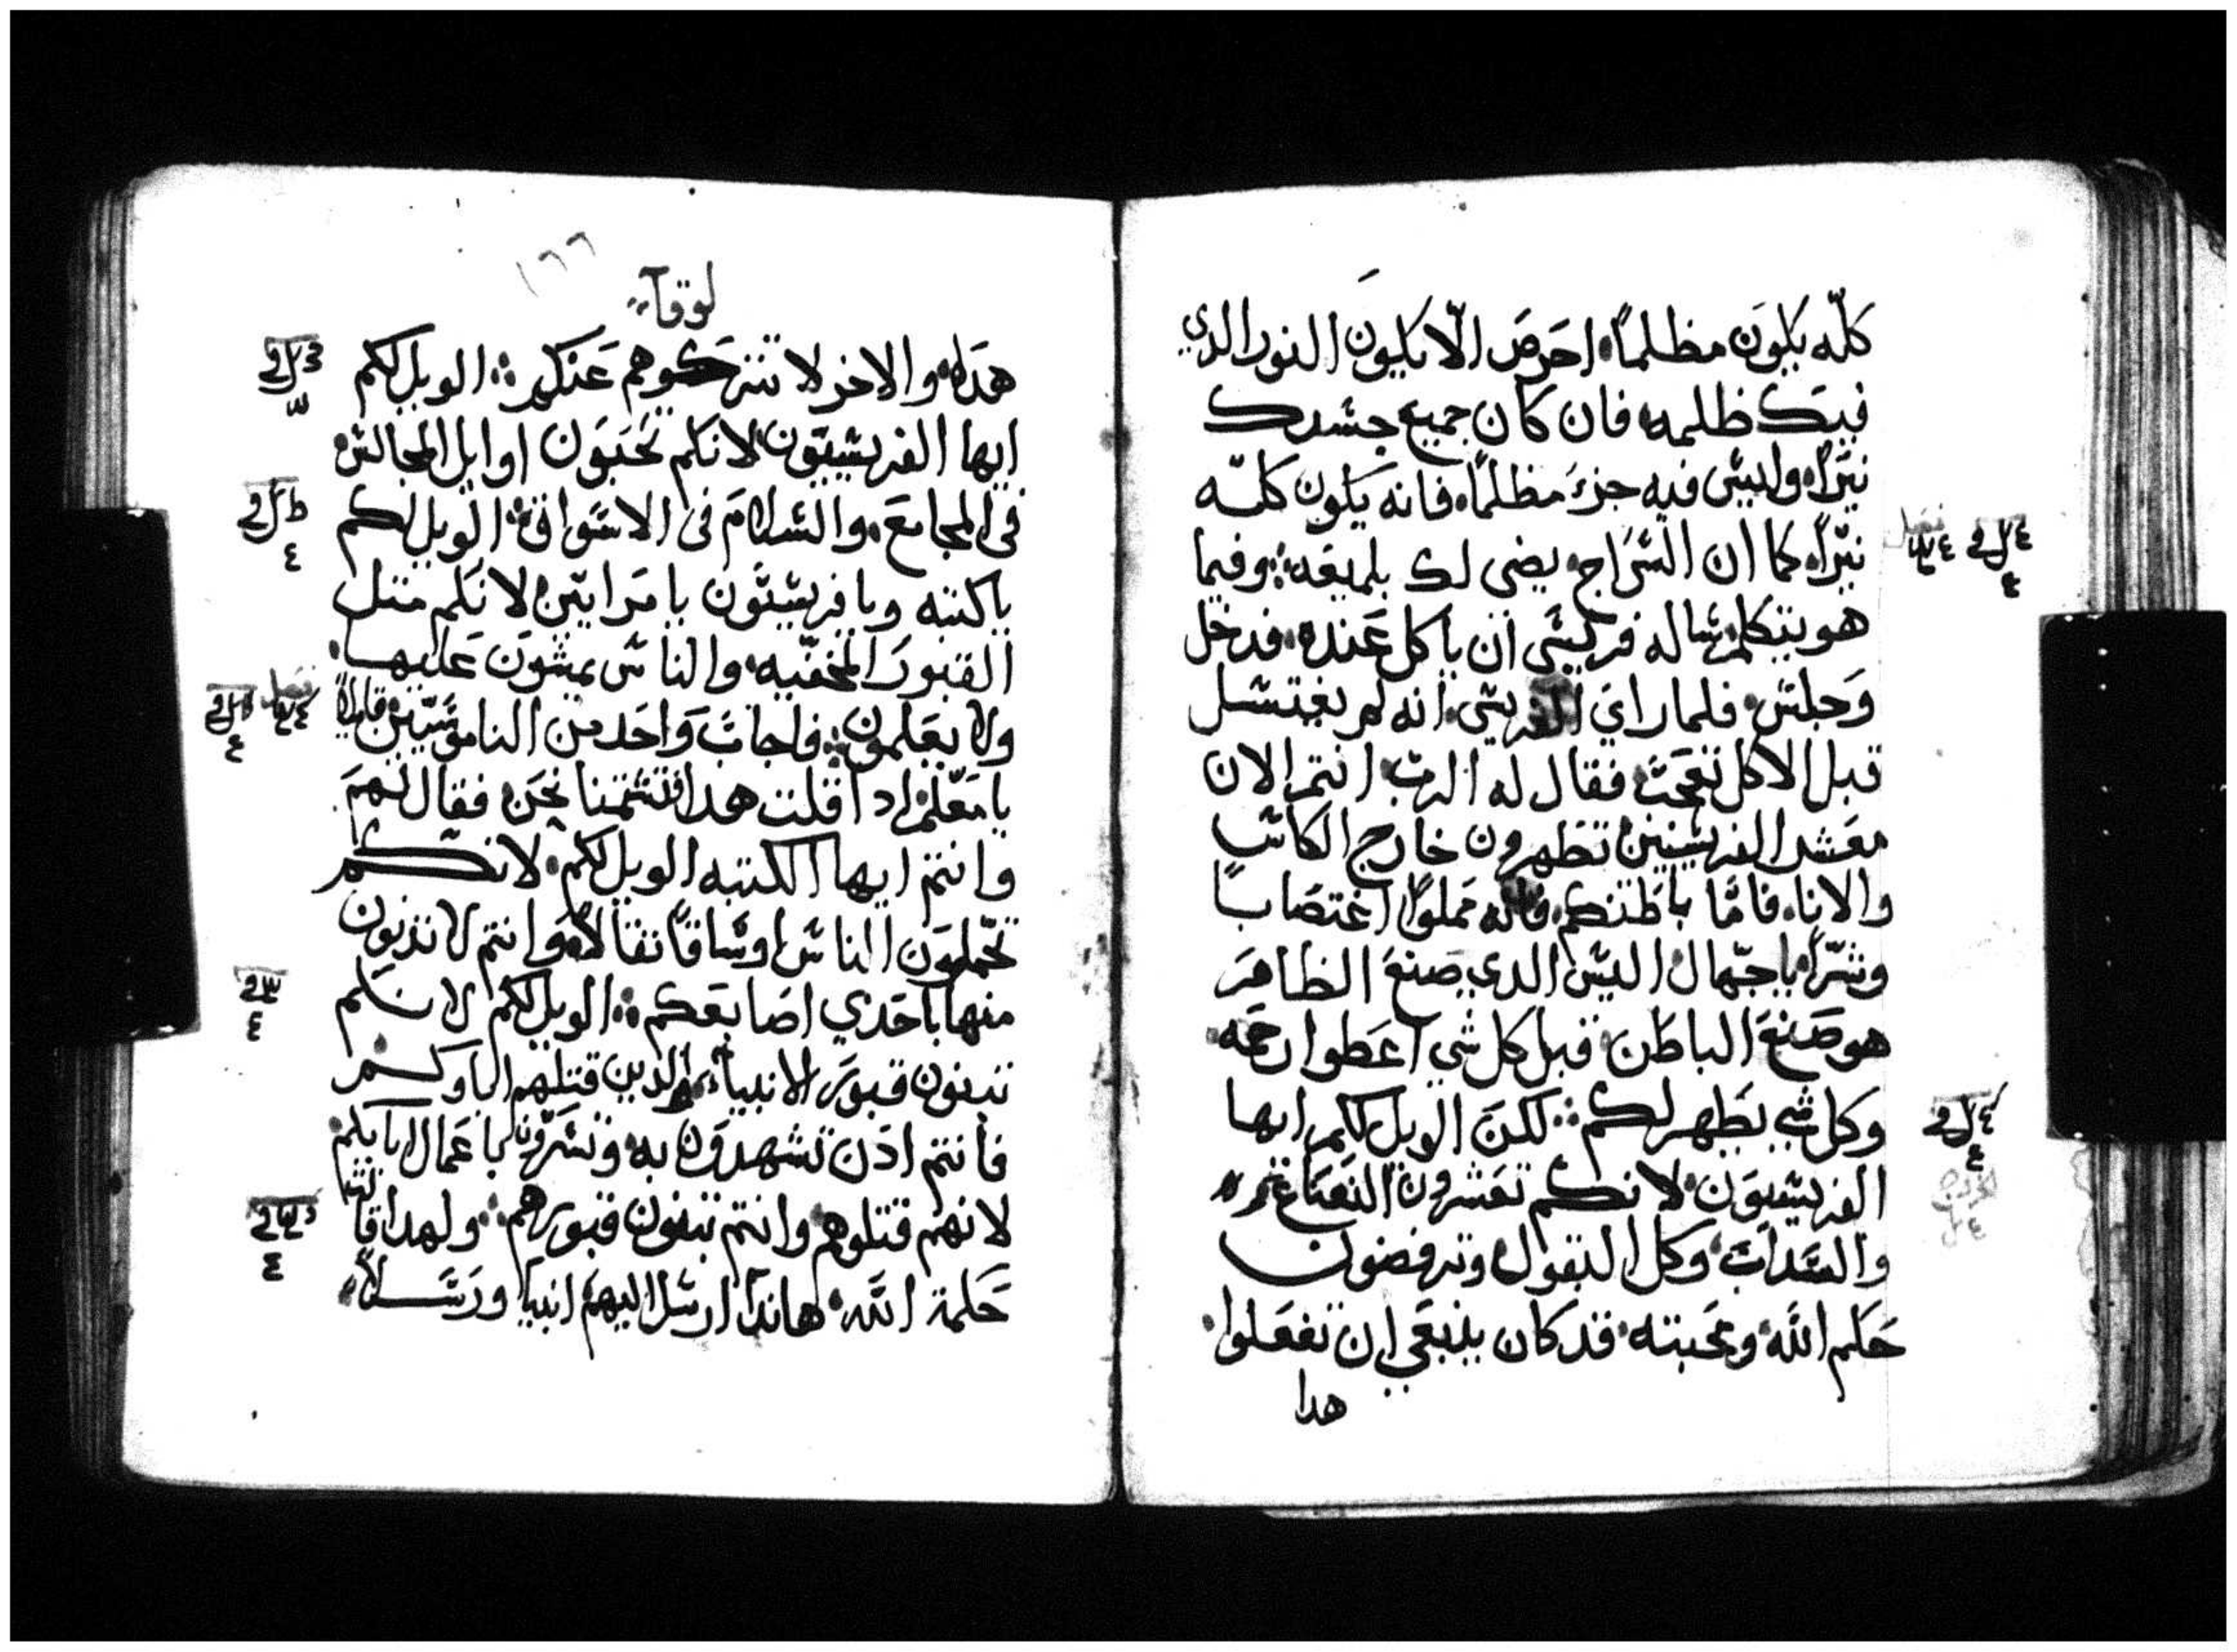 كلّه يكون مظلماً احرص الّا يكون النور الدي
فيك ظلمه فان كان جميع جسدك
نيّراً وليس فيه جزء مظلماً فانه يكون كلّه
نيّراً كما ان السراج يضي لك بلميعه وفيما
هو يتكلم ساله فريسي ان ياكل عنده فدخل
وجلس فلما راي الفريسي انه لم يغتسل
قبل الاكل تعجب فقال له الرب انتم الان
معشر الفريسيين تطهرون خارج الكاس
والانا فامّا باطنكم فانه مملوّا اغتصاباً
وشرّاً يا جهال اليس الدي صنع الظاهر
هو صنع الباطن قبل كل شي اعطوا رحمه
وكل شي يطهر لكم لكن الويل لكم ايها
الفريسيون لانكم تعشرون النعناع
والسداب وكل البقول وترفضون
حكم الله ومحبته قد كان ينبغي ان تفعلوا
هدا
١٦٦
لوقا
هده والاخر لا تتركوهم عنكم الويل لكم
ايها الفريسيون لانكم تحبون اوايل المجالس
في المجامع والسلام في الاسواق الويل لكم
يا كتبه ويا فريسيون يا مرايين لانكم مثل
القبور المخفيه والناس يمشون عليها
ولا يعلمون فاجاب واحد من الناموسيين قايلاً
يا معلم ادا قلت هدا فتشتمنا نحن فقال لهم
وانتم ايها الكتبه الويل لكم لانكم
تحملون الناس اوساقاً ثقالاً وانتم لا تدنون
منها باحدي اصابعكم الويل لكم لانكم
تبنون قبور الانبيا والدين قتلهم اباوكم
فانتم ادن تشهدون به وتسرون باعمال ابايكم
لانهم قتلوهم وانتم تبنون قبورهم ولهدا قالت
حكمة الله هاندا ارسل اليهم انبيا ورسلاً